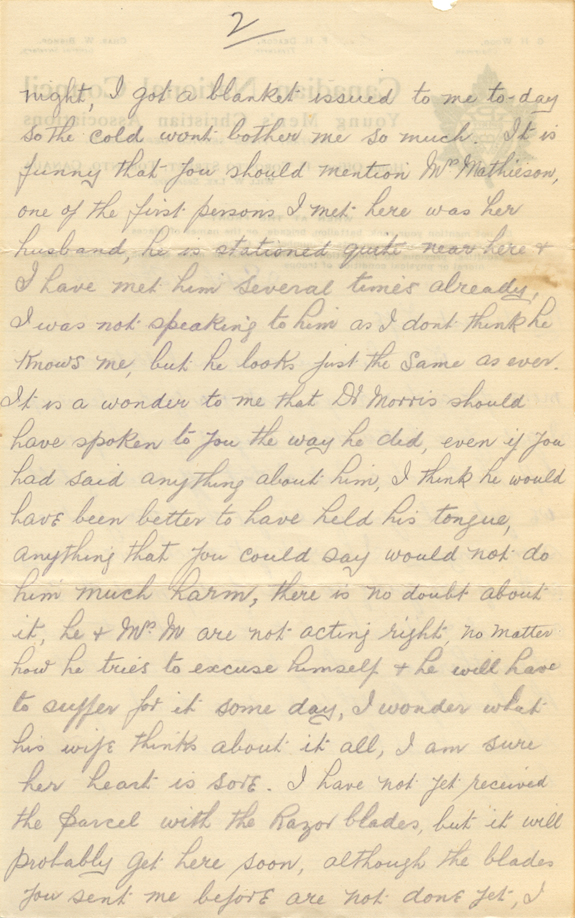 2
night, I got a blanket issued to me to-day
so the cold wont bother me so much. It is
funny that you should mention Mrs Mathieson,
one of the first persons I met here was her
husband, he is stationed quite near here &
I have met him several times already,
I was not speaking to him as I dont think he
knows me, but he looks just the same as ever.
It is a wonder to me that Dr Morris should
have spoken to you the way he did, even if you
had said anything about him, I think he would
have been better to have held his tongue,
anything that you could say would not do
him much harm, there is no doubt about
it, he & Mrs M are not acting right, no matter
how he tries to excuse himself & he will have
to suffer for it some day, I wonder what
his wife thinks about it all, I am sure
her heart is sore. I have not yet received
the parcel with the Razor blades, but it will
probably get here soon, although the blades
you sent me before are not done yet, I
Canadian National Council
Young Men's Christian Associations